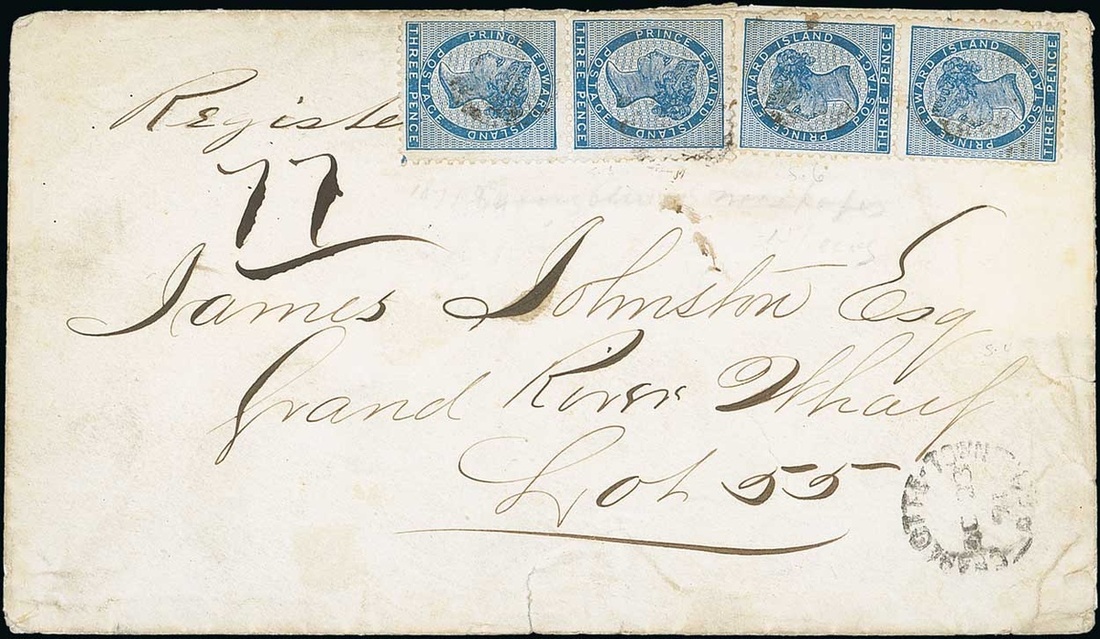 PRINCE EDWARD ISLAND POSTAGE
THREE PENCE
PRINCE EDWARD ISLAND POSTAGE
THREE PENCE
PRINCE EDWARD ISLAND POSTAGE
THREE PENCE
PRINCE EDWARD ISLAND POSTAGE
THREE PENCE
Registe
77
James Johnston Esq
Grand River Wharf
Lot 55